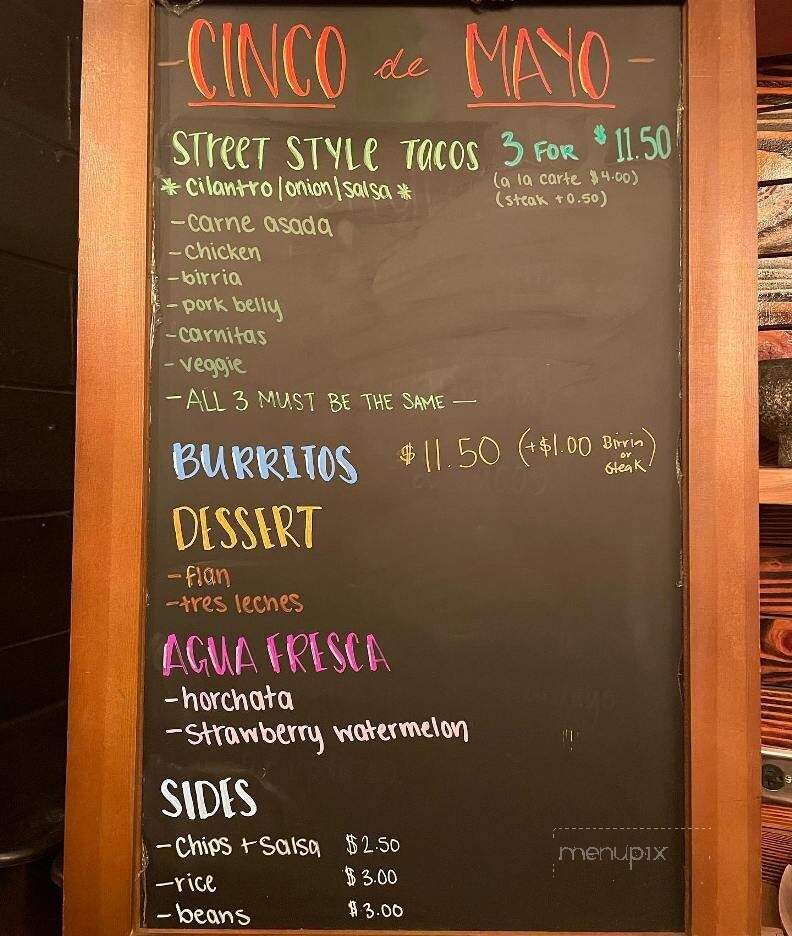 - CINCO de MAYO -
STREET STYLE TACOS 3 FOR $11.50
* cilantro/onion/salsa * (a la carte $4.00)
(steak +0.50)
- carne asada
- chicken
- birria
- pork belly
- carnitas
- veggie
- ALL 3 MUST BE THE SAME —
BURRITOS $11.50 (+$1.00 Birria or steak)
DESSERT
- flan
- tres leches
AGUA FRESCA
- horchata
- strawberry watermelon
SIDES
- chips + salsa $2.50
- rice $3.00
- beans $3.00
menupix